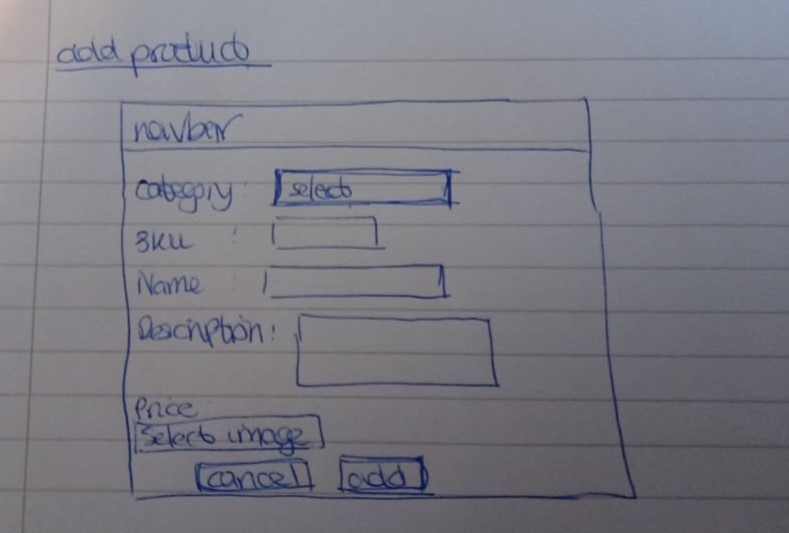 add product
navbar
category: select
SKU :
Name :
Description:
Price
Select image
cancel add